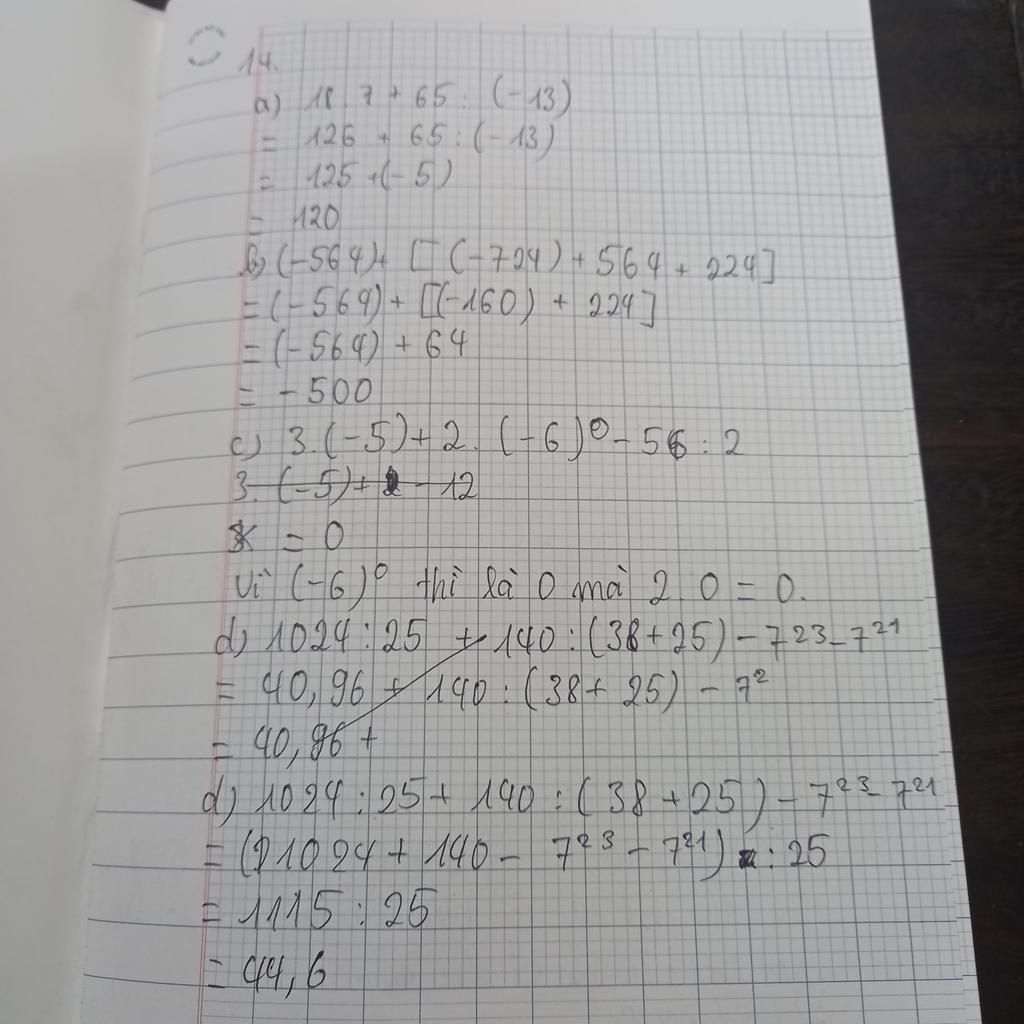 14.
a) 18 . 7 + 65 : (-13)
= 126 + 65 : (-13)
= 125 + (-5)
= 120
b) (-564) + [(-724) + 564 + 224]
= (-564) + [(-160) + 224]
= (-564) + 64
= - 500
c) 3.(-5) + 2. (-6)⁰ - 56 : 2
3. (-5) + 2 - 12
x = 0
Vì (-6)⁰ thì là 0 mà 2 . 0 = 0.
d) 1024 : 25 + 140 : (38 + 25) - 7²³ - 7²¹
= 40,96 + 140 : (38 + 25) - 7²
= 40,96 +
d) 1024 : 25 + 140 : (38 + 25) - 7²³ - 7²¹
= (1024 + 140 - 7²³ - 7²¹) : 25
= 1115 : 25
= 44,6